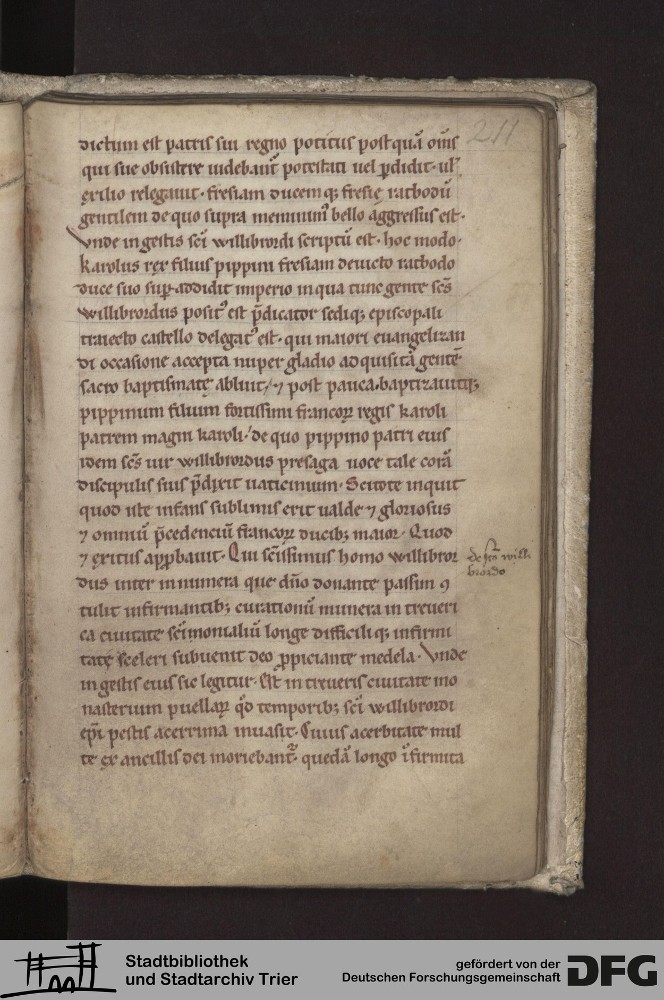 211
dictum est patris sui regno potitus postquā om̄s
qui sue obsistere uidebant᷑ potestati uel p̱didit · ul᷑
exilio relegauit · fresiam ducemq; fresię ratbodū
gentilem de quo supra meminim᷒ bello aggressus est ·
Vnde in gestis sc̄i willibrordi scriptū est · hoc modo ·
Karolus rex filius pippini fresiam deuicto ratbodo
duce suo sup̱addidit imperio in qua tunc gente sc̄s
willibrordus posit᷒ est p̄dicator sediq; episcopali
traiecto castello delegat᷒ est · qui maiori euangelizan
di occasione accepta nuper gladio adquisitā gentē
sacro baptismate abluit / ⁊ post pauca baptizauitq;
pippinum filium fortissimi francoꝝ regis karoli
patrem magni karoli / de quo pippino patri eius
idem sc̄s uir willibrordus presaga uoce tale corā
discipulis suis p̄dixit uaticinium · Scitote inquit
quod iste infans sublimis erit ualde ⁊ gloriosus
⁊ omniū p̄cedenciū francoꝝ ducib; maior · Quod
⁊ exitus app̱bauit · Qui sc̄issimus homo willibror
dus inter innumera que dn̄o donante passim ꝯ
tulit infirmantib; curationū munera in treueri
ca ciuitate sc̄imonialiū longe difficili q; infirmi
tate sceleri subuenit deo ꝓpiciante medela · Vnde
in gestis eius sic legitur · Est in treueris ciuitate mo
nasterium puellaꝝ qd̄ temporib; sc̄i willibrordi
ep̄i pestis acerrima inuasit · Cuius acerbitate mul
te ex ancillis dei moriebant᷑ · quedā longo īfirmita
de sc̄o willi
brordo
Stadtbibliothek
und Stadtarchiv Trier
gefördert von der
Deutschen Forschungsgemeinschaft
DFG